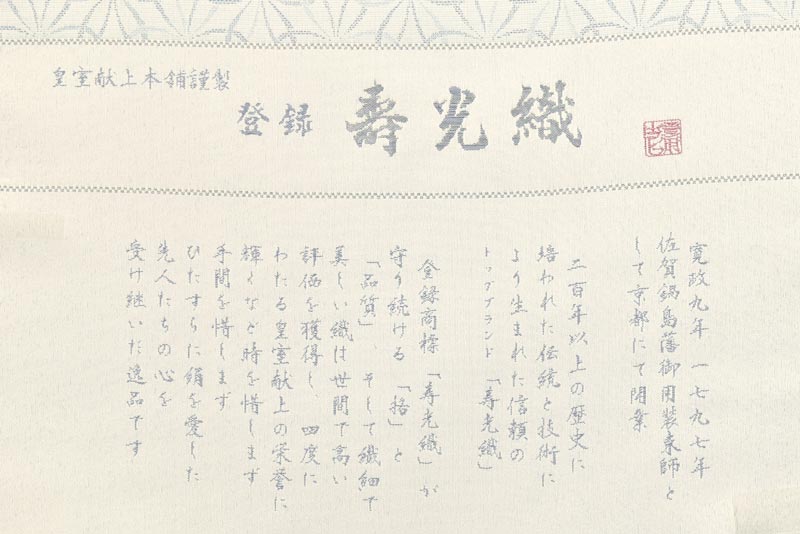 皇室献上本舗謹製
登録 壽光織
寛政九年 一七九七年
佐賀鍋島藩御用装束師と
して京都にて開業
二百年以上の歴史に
培われた伝統と技術に
より生まれた信頼の
トップブランド「寿光織」
登録商標「寿光織」が
守り続ける「格」と
「品質」、そして繊細で
美しい織は世間で高い
評価を獲得し、四度に
わたる皇室献上の栄誉に
輝くなど時を惜しまず
手間を惜しまず
ひたすらに絹を愛した
先人たちの心を
受け継いだ逸品です